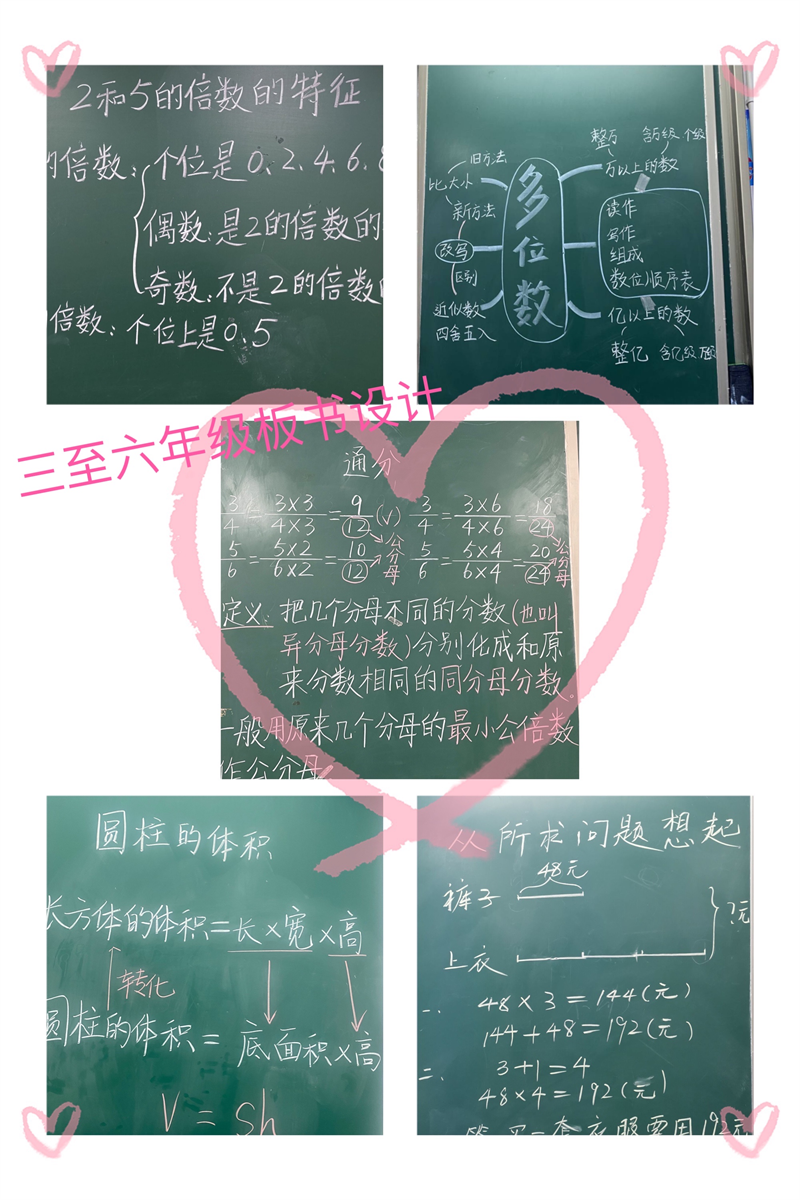 2和5的倍数的特征
的倍数:个位是0、2、4、6、8
偶数:是2的倍数的
奇数:不是2的倍数的
倍数:个位上是0、5
多位数
旧方法
比大小
新方法
改写
区别
近似数
四舍五入
整万 含万级 个级
万以上的数
读作
写作
组成
数位顺序表
亿以上的数
整亿 含亿级 万级
三至六年级板书设计
通分
3/4=3×3/4×3=9/12(√) 3/4=3×6/4×6=18/24
5/6=5×2/6×2=10/12 公分母 5/6=5×4/6×4=20/24 公分母
定义:把几个分母不同的分数(也叫
异分母分数)分别化成和原
来分数相同的同分母分数。
一般用原来几个分母的最小公倍数
作公分母。
圆柱的体积
长方体的体积=长×宽×高
转化
圆柱的体积=底面积×高
V=Sh
从所求问题想起
48元
裤子
?元
上衣
一、 48×3=144(元)
144+48=192(元)
二、 3+1=4
48×4=192(元)
答:买一套衣服要用192元